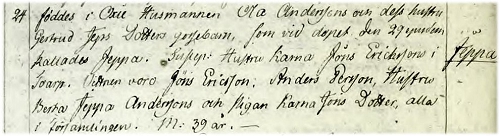 24 föddes i Oxie Husmannen Ola Andersons och dess hustru
Gertrud Jeps Dotters gossebarn, som vid dopet den 29 ejusdem
kallades Jeppa. Suscep: Hustru Karna Jöns Ericksons i
Toarp. Vittnen voro Jöns Ericsson, Anders Person, Hustru
Jeppa
Berta Jeppa Andersons och Pigan Karna Jöns Dotter, alla
i församlingen. M: 39 år. —